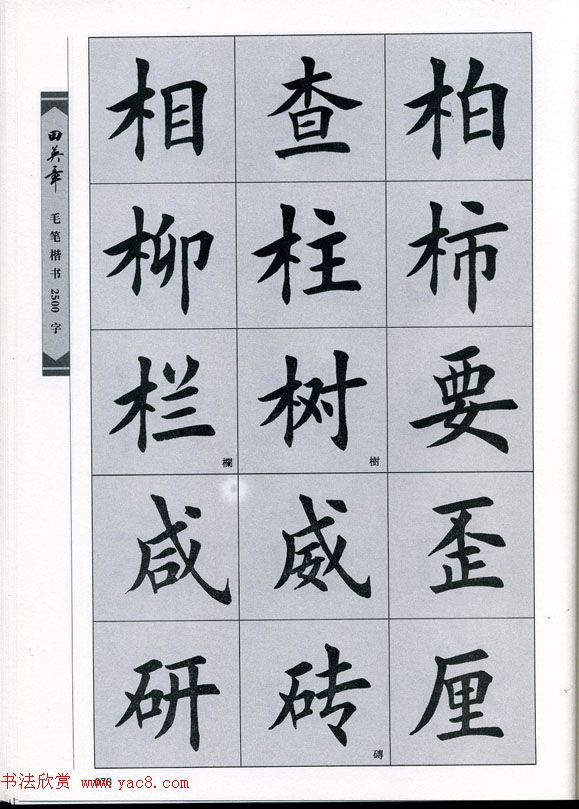 田英章 毛笔楷书 2500 字
相 查 柏
柳 柱 柿
栏 欄 树 樹 要
咸 威 歪
研 砖 磚 厘
078
书法欣赏 www.yac8.com